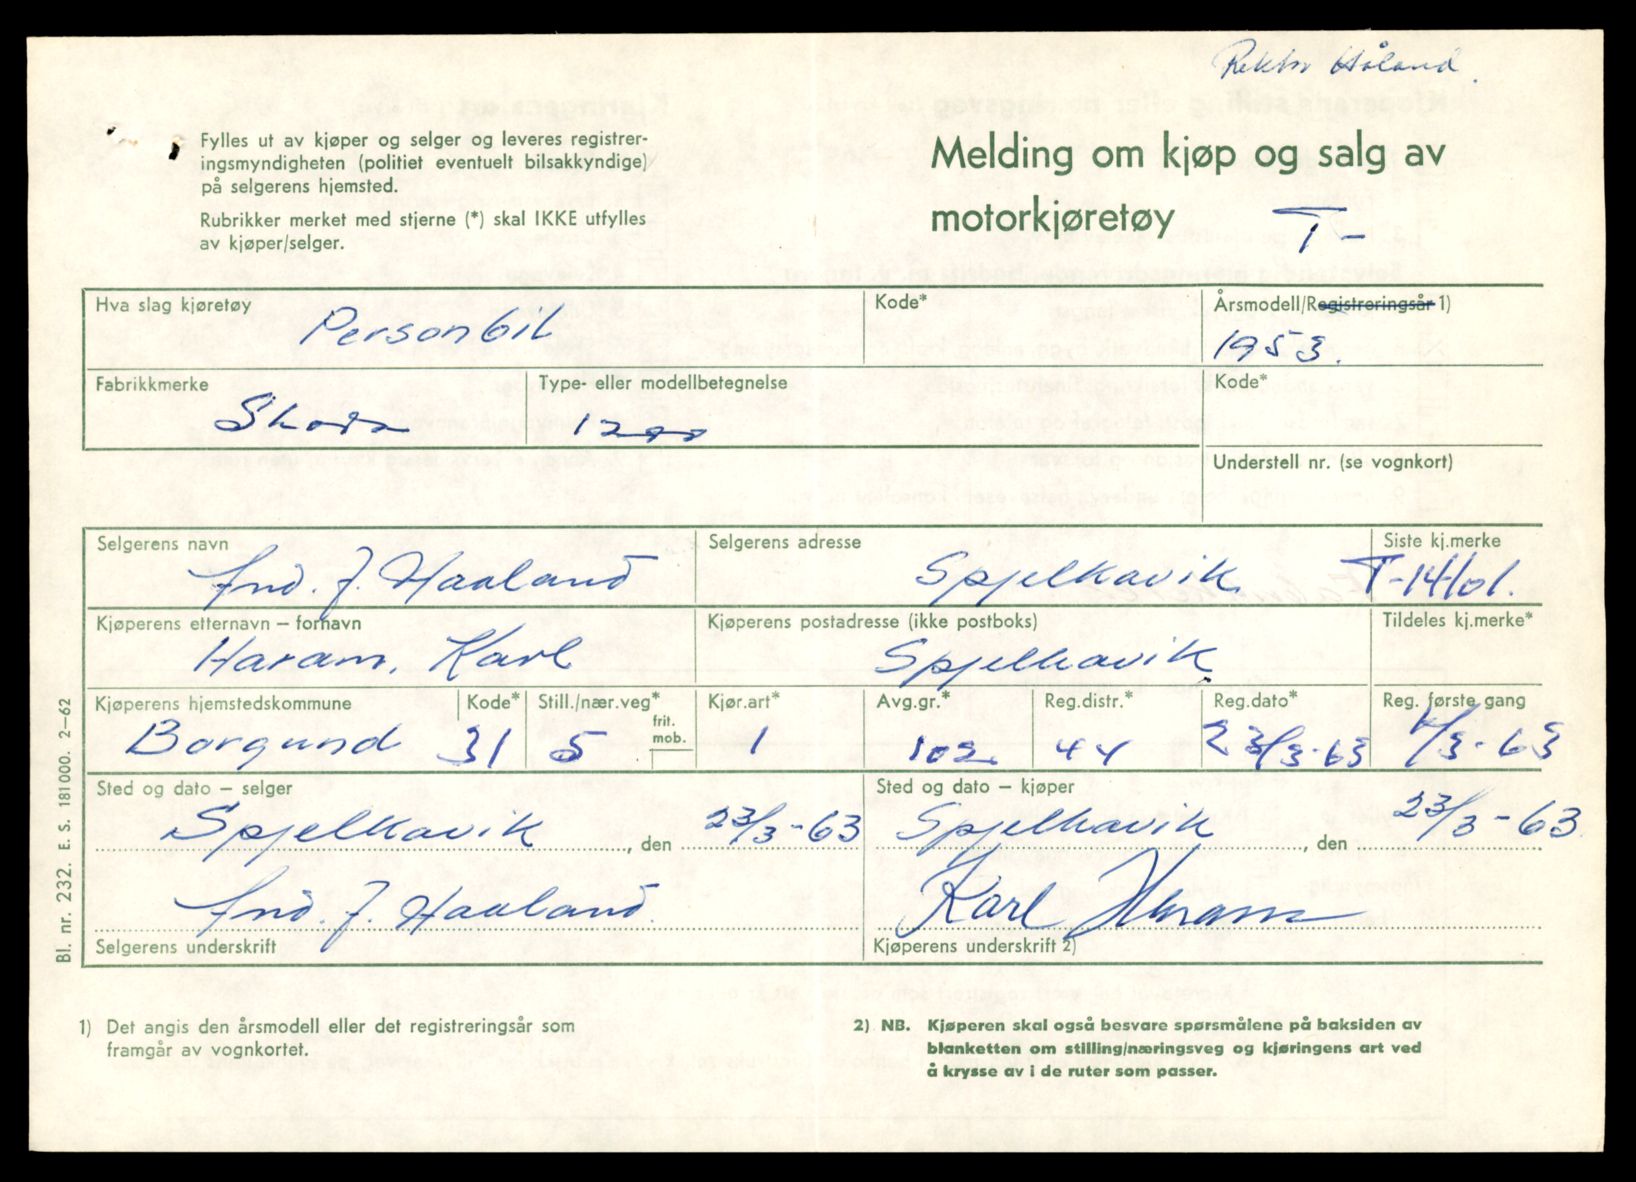 Rektor Håland.
Fylles ut av kjøper og selger og leveres registrer-
ingsmyndigheten (politiet eventuelt bilsakkyndige)
på selgerens hjemsted.
Rubrikker merket med stjerne (*) skal IKKE utfylles
av kjøper/selger.
Melding om kjøp og salg av
motorkjøretøy T-
Hva slag kjøretøy Kode* Årsmodell/Registreringsår 1)
Personbil 1953.
Fabrikkmerke Type- eller modellbetegnelse Kode*
Skoda 1200
Understell nr. (se vognkort)
Selgerens navn Selgerens adresse Siste kj.merke
And. J. Haaland Spjelkavik T-14101.
Kjøperens etternavn – fornavn Kjøperens postadresse (ikke postboks) Tildeles kj.merke*
Haram, Karl Spjelkavik
Kjøperens hjemstedskommune Kode* Still./nær.veg* Kjør.art* Avg.gr.* Reg.distr.* Reg.dato* Reg. første gang
frit.
mob.
Borgund 31 5 1 102 44 23/3-63
Sted og dato – selger Sted og dato – kjøper
Spjelkavik, den 23/3-63 Spjelkavik, den 23/3-63
And. J. Haaland. Karl Haram
Selgerens underskrift Kjøperens underskrift 2)
Bl. nr. 232. E. S. 181 000. 2–62
1) Det angis den årsmodell eller det registreringsår som
framgår av vognkortet.
2) NB. Kjøperen skal også besvare spørsmålene på baksiden av
blanketten om stilling/næringsveg og kjøringens art ved
å krysse av i de ruter som passer.